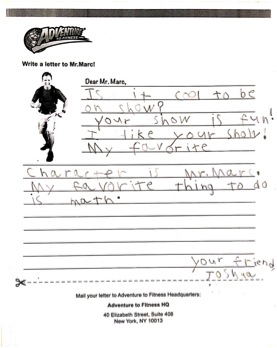 ADVENTURE
Write a letter to Mr.Marc!
Dear Mr. Marc,
Is it cool to be
on show?
your show is fun!
I like your show!
My favorite
Character is Mr.Marc.
My favorite thing to do
is math.
your friend
Joshua
Mail your letter to Adventure to Fitness Headquarters:
Adventure to Fitness HQ
40 Elizabeth Street, Suite 408
New York, NY 10013